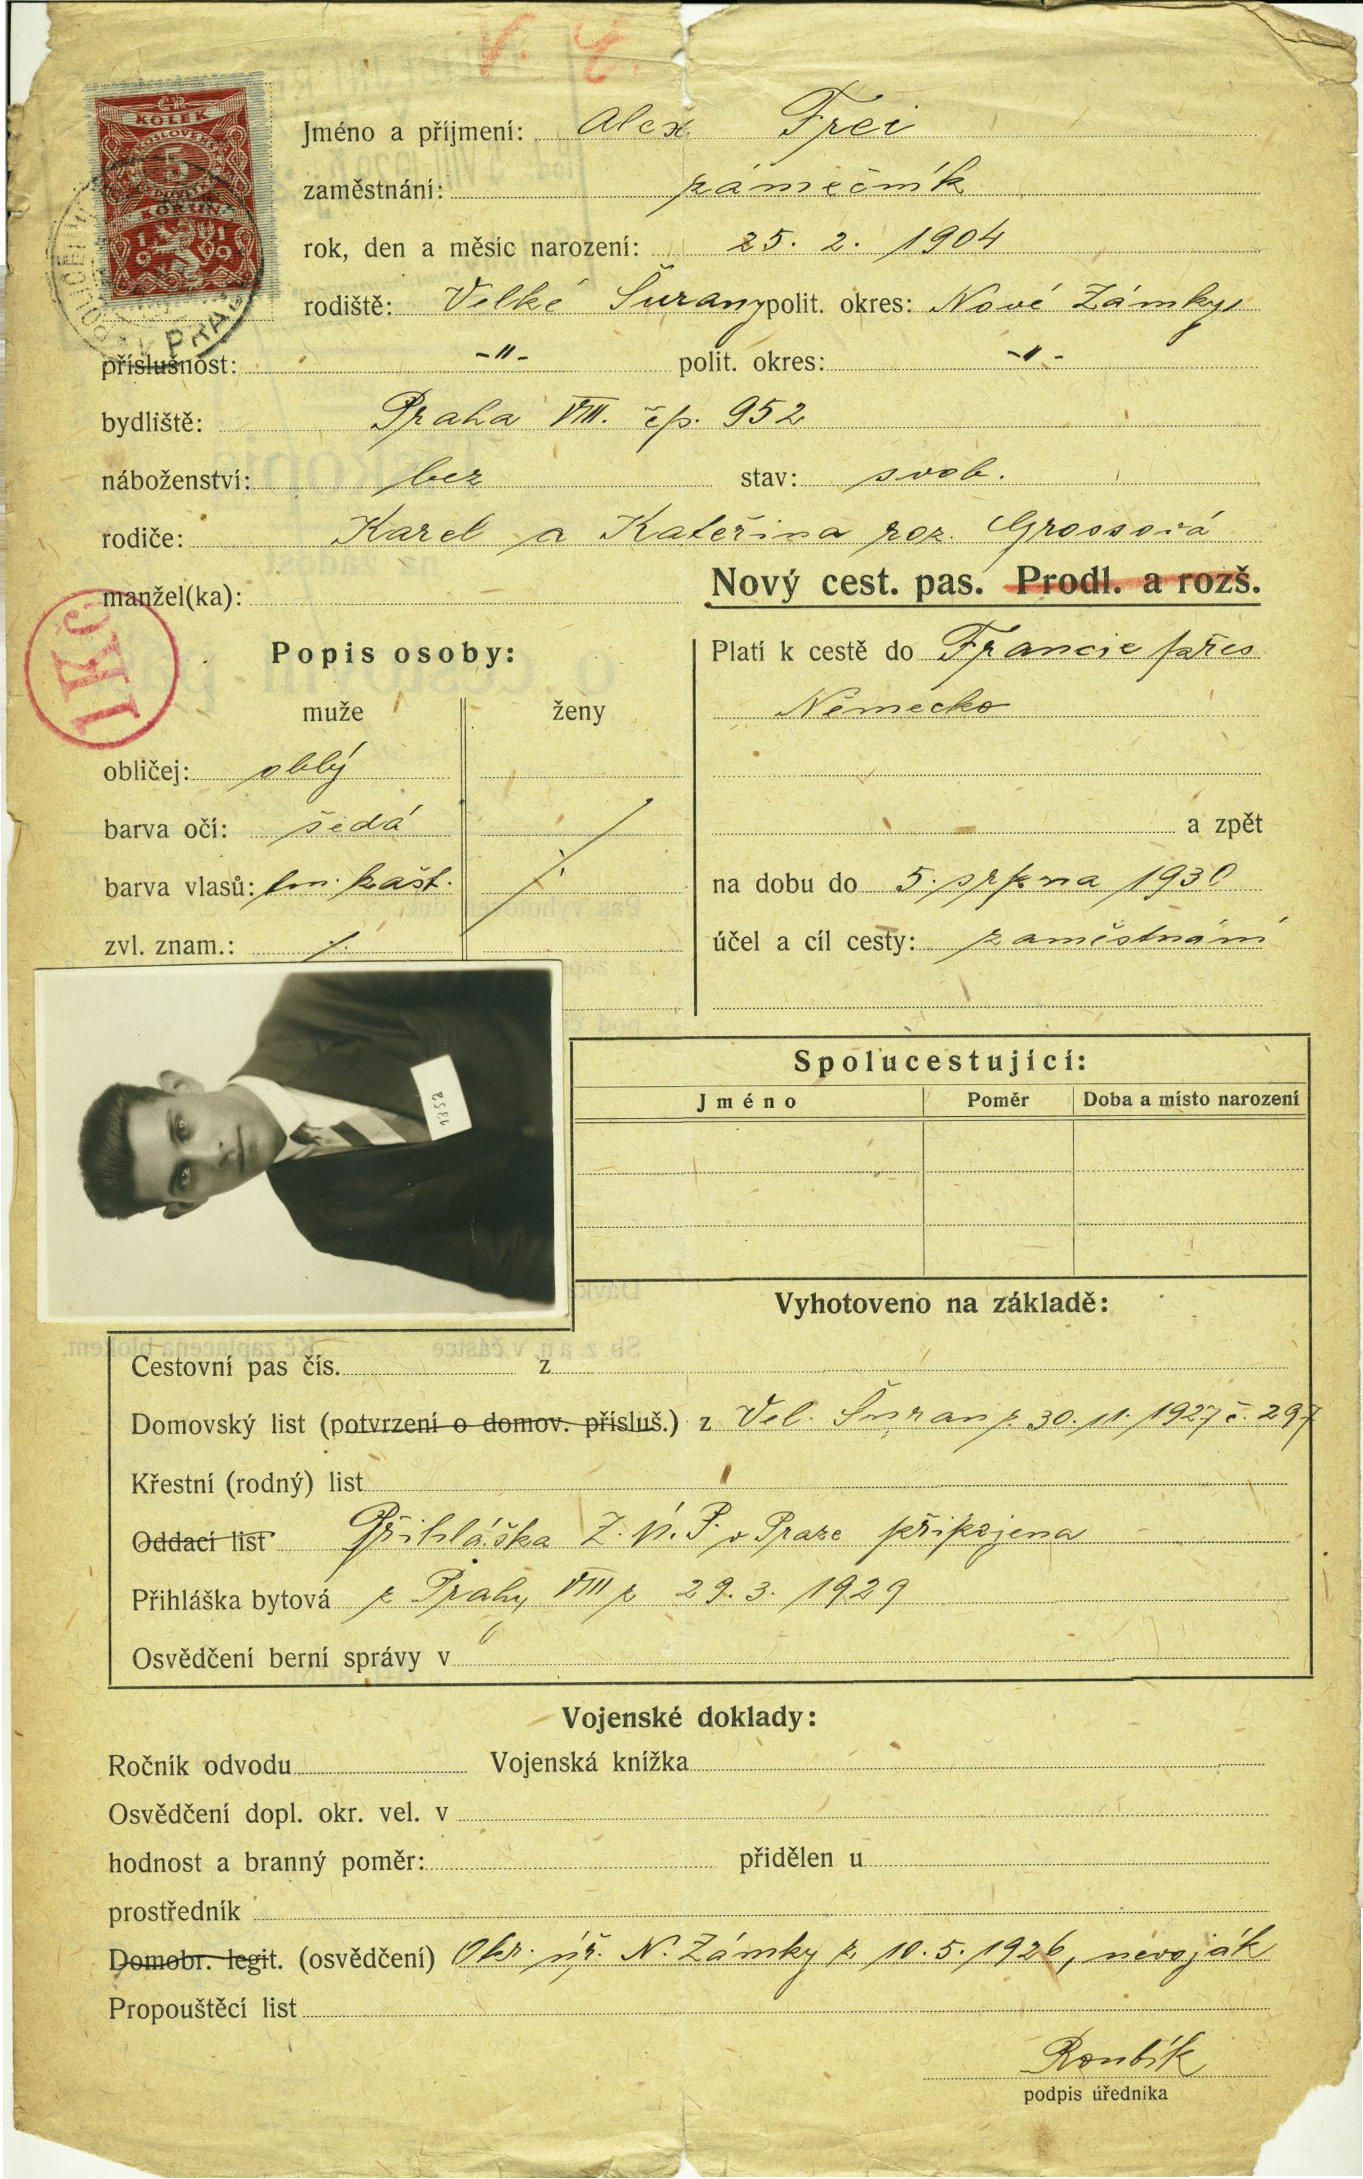 V. Y.
ČR
KOLEK
ČESKOSLOVENSKÁ
5
KORUN
1919
POLICEJNÍ
V PRAZE
Jméno a příjmení: Alex Frei
zaměstnání: zámečník
rok, den a měsíc narození: 25. 2. 1904
rodiště: Velké Šurany polit. okres: Nové Zámky
příslušnost: -"- polit. okres: -"-
bydliště: Praha VIII. čp. 952
náboženství: bez stav: svob.
rodiče: Karel a Kateřina roz. Grossová
manžel(ka):
Nový cest. pas. Prodl. a rozš.
1Kč
Popis osoby:
muže ženy
obličej: oblý
barva očí: šedá
barva vlasů: tm. kašt.
zvl. znam.: ./.
Platí k cestě do Francie přes
Německo
a zpět
na dobu do 5. srpna 1930
účel a cíl cesty: zaměstnání
1352
Spolucestující:
Jméno Poměr Doba a místo narození
Vyhotoveno na základě:
Cestovní pas čís. z
Domovský list (potvrzení o domov. přísluš.) z Vel. Šuran z 30. 11. 1927 č. 297
Křestní (rodný) list
Oddací list Přihláška Z. Ú. P. v Praze připojena
Přihláška bytová z Prahy VIII z 29. 3. 1929
Osvědčení berní správy v
Vojenské doklady:
Ročník odvodu Vojenská knížka
Osvědčení dopl. okr. vel. v
hodnost a branný poměr: přidělen u
prostředník
Domobr. legit. (osvědčení) Okr. úř. N. Zámky z 10. 5. 1926, nevoják
Propouštěcí list
Roubík
podpis úředníka